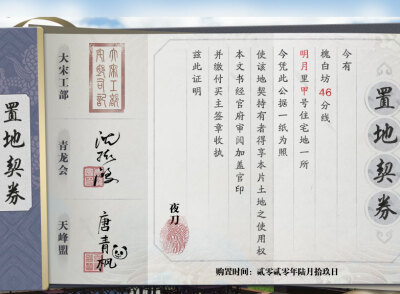 置地契券
今有
槐白坊46分线
明月里甲号住宅地一所
今凭此公据一纸为照
使该地契持有者得享本片土地之使用权
本文书经官府审阅加盖官印
并缴付买主签章收执
兹此证明
夜刀
购置时间：贰零贰零年陆月拾玖日
大宋工部
青龙会
天峰盟
唐青枫
置地契券